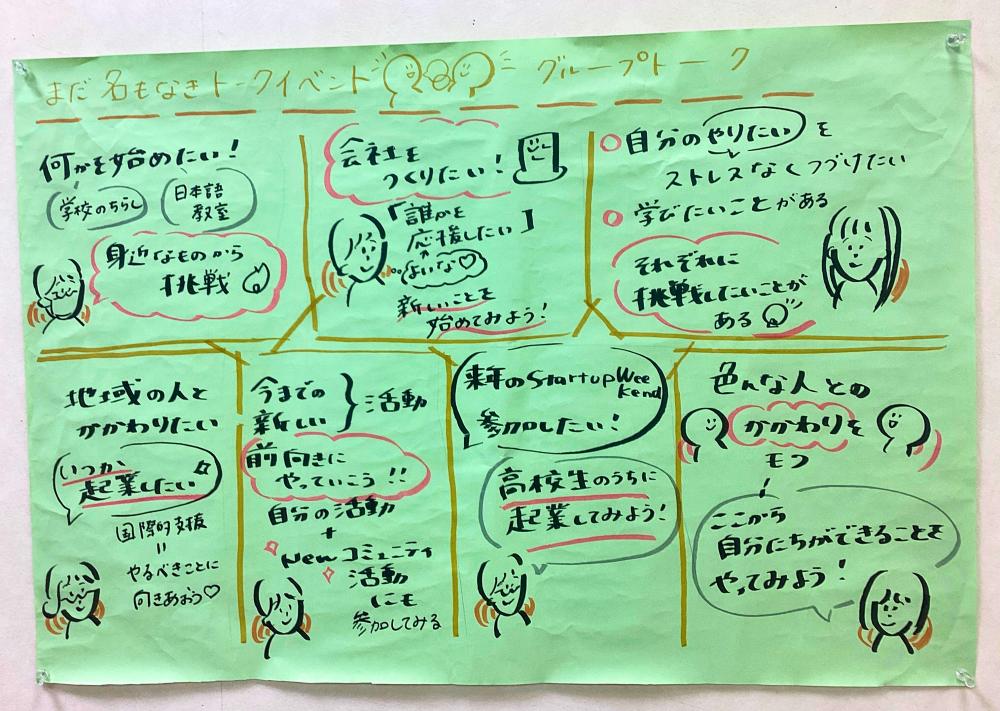 まだ名もなきトークイベント グループトーク
何かを始めたい!
学校のちらし
日本語
教室
身近なものから
挑戦
会社を
つくりたい!
「誰かを
応援したい」
よいな♡
新しいことを
始めてみよう!
自分のやりたいを
ストレスなくつづけたい
学びたいことがある
それぞれに
挑戦したいことが
ある
地域の人と
かかわりたい
いつか
起業したい
国際的支援
=
やるべきことに
向きあおう♡
今までの
新しい
活動
前向きに
やっていこう!!
自分の活動
+
New コミュニティ
活動
にも
参加してみる
来年のStartupWee
kend
参加したい!
高校生のうちに
起業してみよう!
色んな人との
かかわりを
モつ
ここから
自分にちができることを
やってみよう!